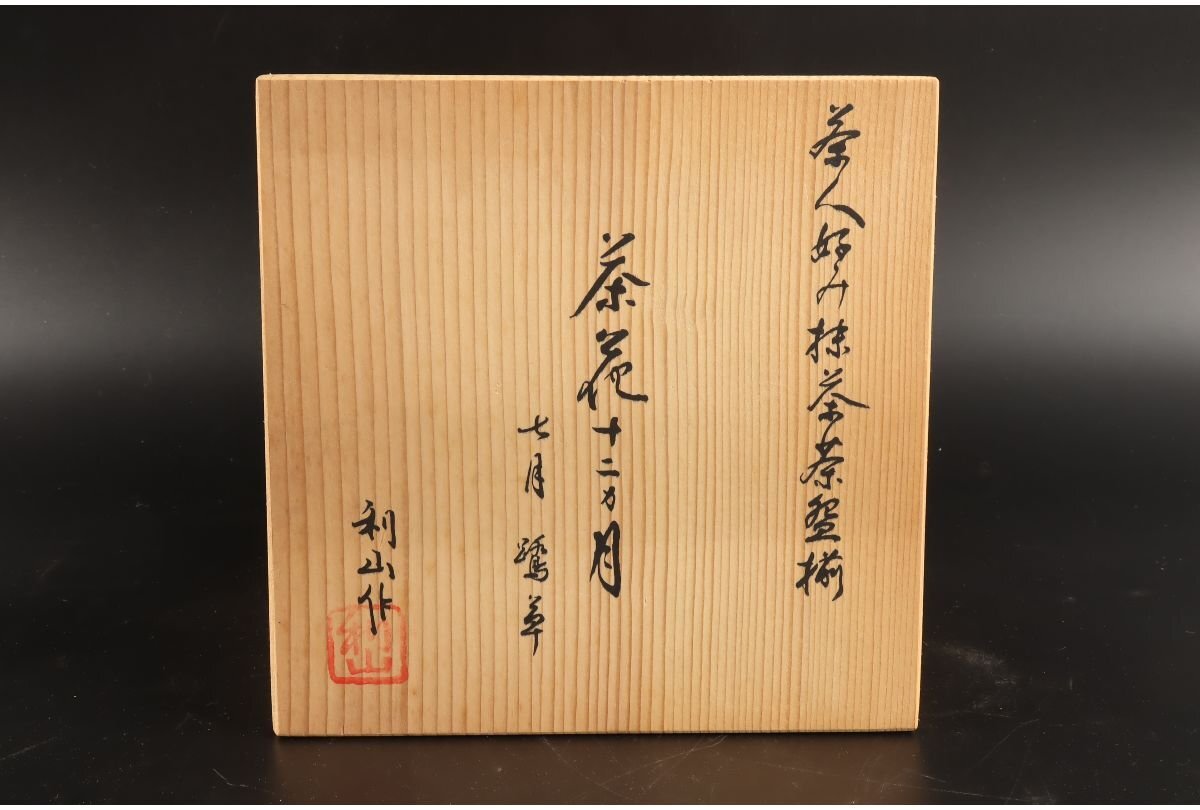 茶人好み抹茶茶盌揃
茶花十二カ月
七月 鷺草
利山作
利山